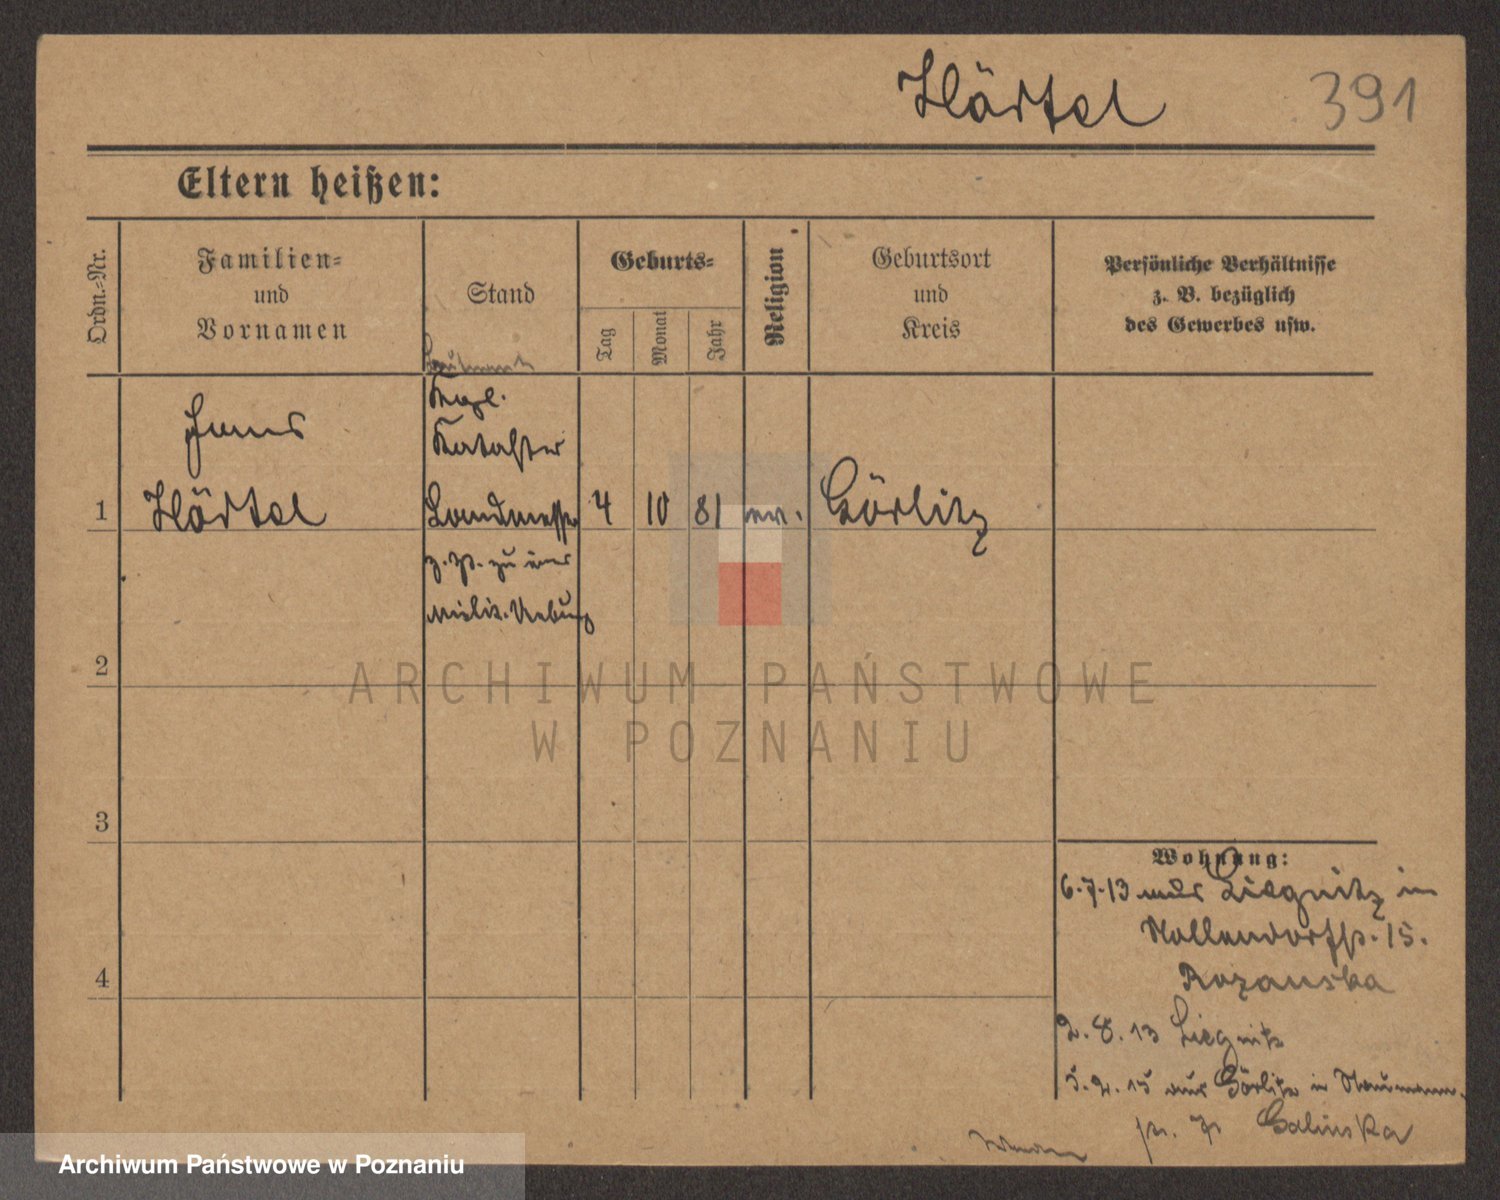 Härtel 391
Eltern heißen:
Ordn.-Nr.
Familien-
und
Vornamen
Stand
Geburts-
Tag
Monat
Jahr
Religion
Geburtsort
und
Kreis
Persönliche Verhältnisse
z. B. bezüglich
des Gewerbes usw.
Kgl.
Hans
Kataster
1 Härtel Landmesser 4 10 81 ev. Görlitz
z. Zt. zu einer
milit. Uebung
2
ARCHIWUM PAŃSTWOWE
W POZNANIU
3
Wohnung:
6.7.13 aus Liegnitz in
Nollendorfstr. 15.
4 Rozanska
2.8.13 Liegnitz
5.2.15 aus Görlitz in Naumann-
str. 7 Galinska
Archiwum Państwowe w Poznaniu